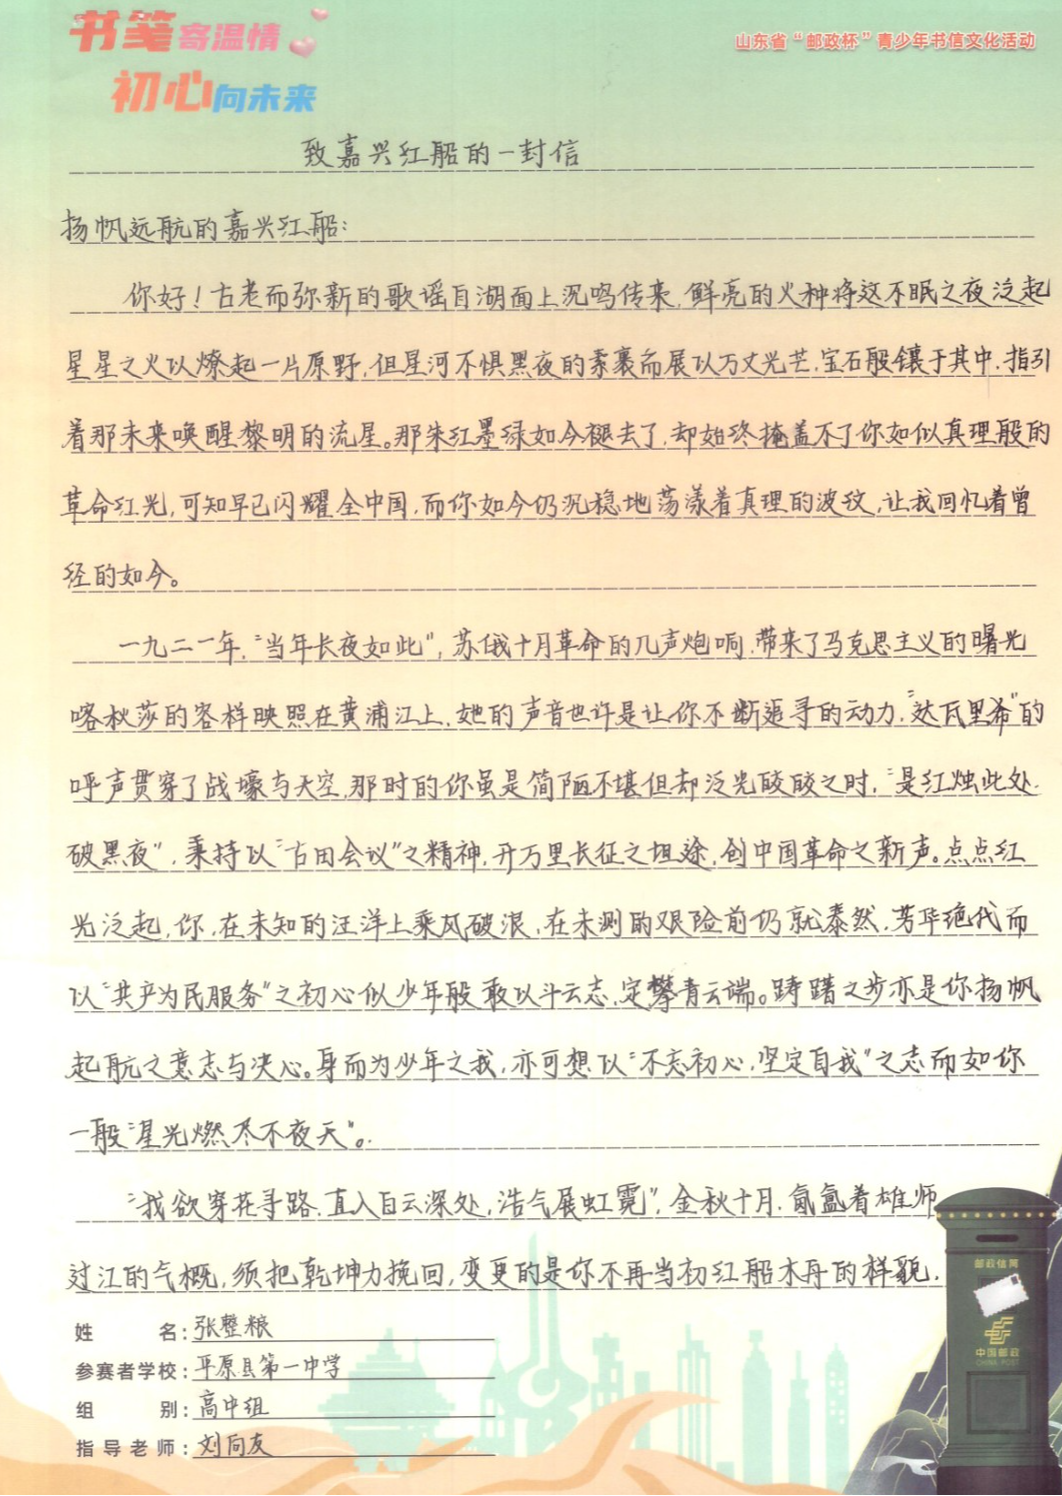 书笔寄温情
初心向未来
山东省“邮政杯”青少年书信文化活动
致嘉兴红船的一封信
扬帆远航的嘉兴红船:
你好！古老而弥新的歌谣自湖面上沉鸣传来,鲜亮的火种将这不眠之夜泛起
星星之火以燎起一片原野,但星河不惧黑夜的素裹而展以万丈光芒,宝石般镶于其中,指引
着那未来唤醒黎明的流星。那朱红墨绿如今褪去了,却始终掩盖不了你如似真理般的
革命红光,可知早已闪耀全中国,而你如今仍沉稳地荡漾着真理的波纹,让我回忆着曾
经的如今。
一九二一年,“当年长夜如此”,苏俄十月革命的几声炮响,带来了马克思主义的曙光
喀秋莎的容样映照在黄浦江上,她的声音也许是让你不断追寻的动力,“达瓦里希”的
呼声贯穿了战壕与天空,那时的你虽是简陋不堪但却泛光皎皎之时,“是红烛此处
破黑夜”,秉持以“古田会议”之精神,开万里长征之坦途,创中国革命之新声。点点红
光泛起,你,在未知的汪洋上乘风破浪,在未测的艰险前仍就泰然,芳华绝代而
以“共产为民服务”之初心似少年般敢以斗云志,定攀青云端。踌躇之步亦是你扬帆
起航之意志与决心。身而为少年之我,亦可想以“不忘初心,坚定自我”之志而如你
一般“星光燃尽不夜天”。
“我欲穿花寻路,直入白云深处,浩气展虹霓”,金秋十月,氤氲着雄师
过江的气概,须把乾坤力挽回,变更的是你不再当初红船木舟的样貌,
姓名:张整粮
参赛者学校:平原县第一中学
组别:高中组
指导老师:刘向友
邮政信筒
中国邮政
CHINA POST